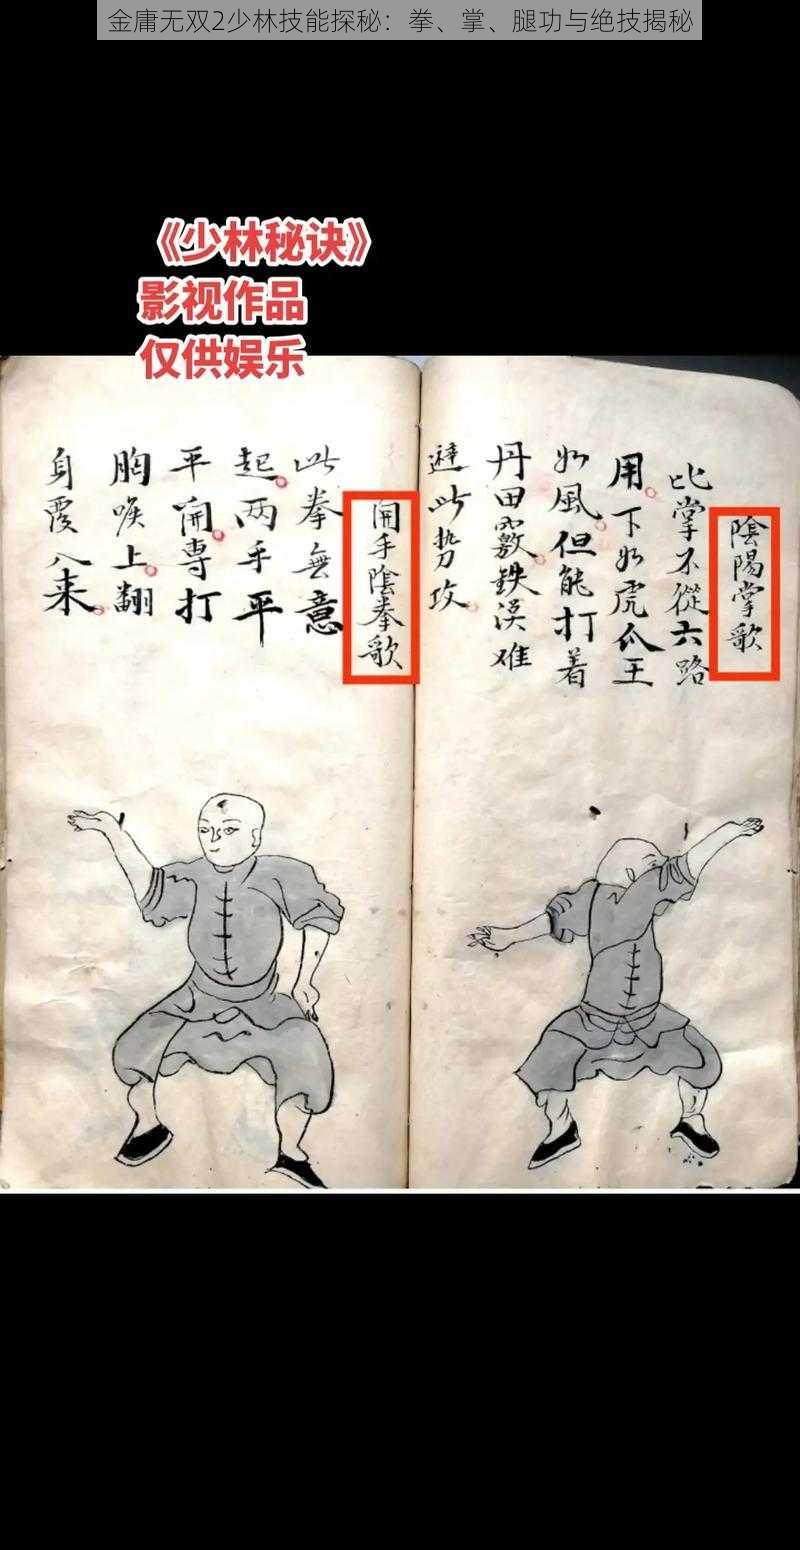 金庸无双2少林技能探秘：拳、掌、腿功与绝技揭秘
《少林秘诀》
影视作品
仅供娱乐
陰陽掌歌
比掌不從六路
用下如虎爪王
如風但能打着
丹田竅鉄漢难
避此势攻
開手陰拳歌
此拳無意
起两手平
平開專打
胸喉上翻
身覆入来